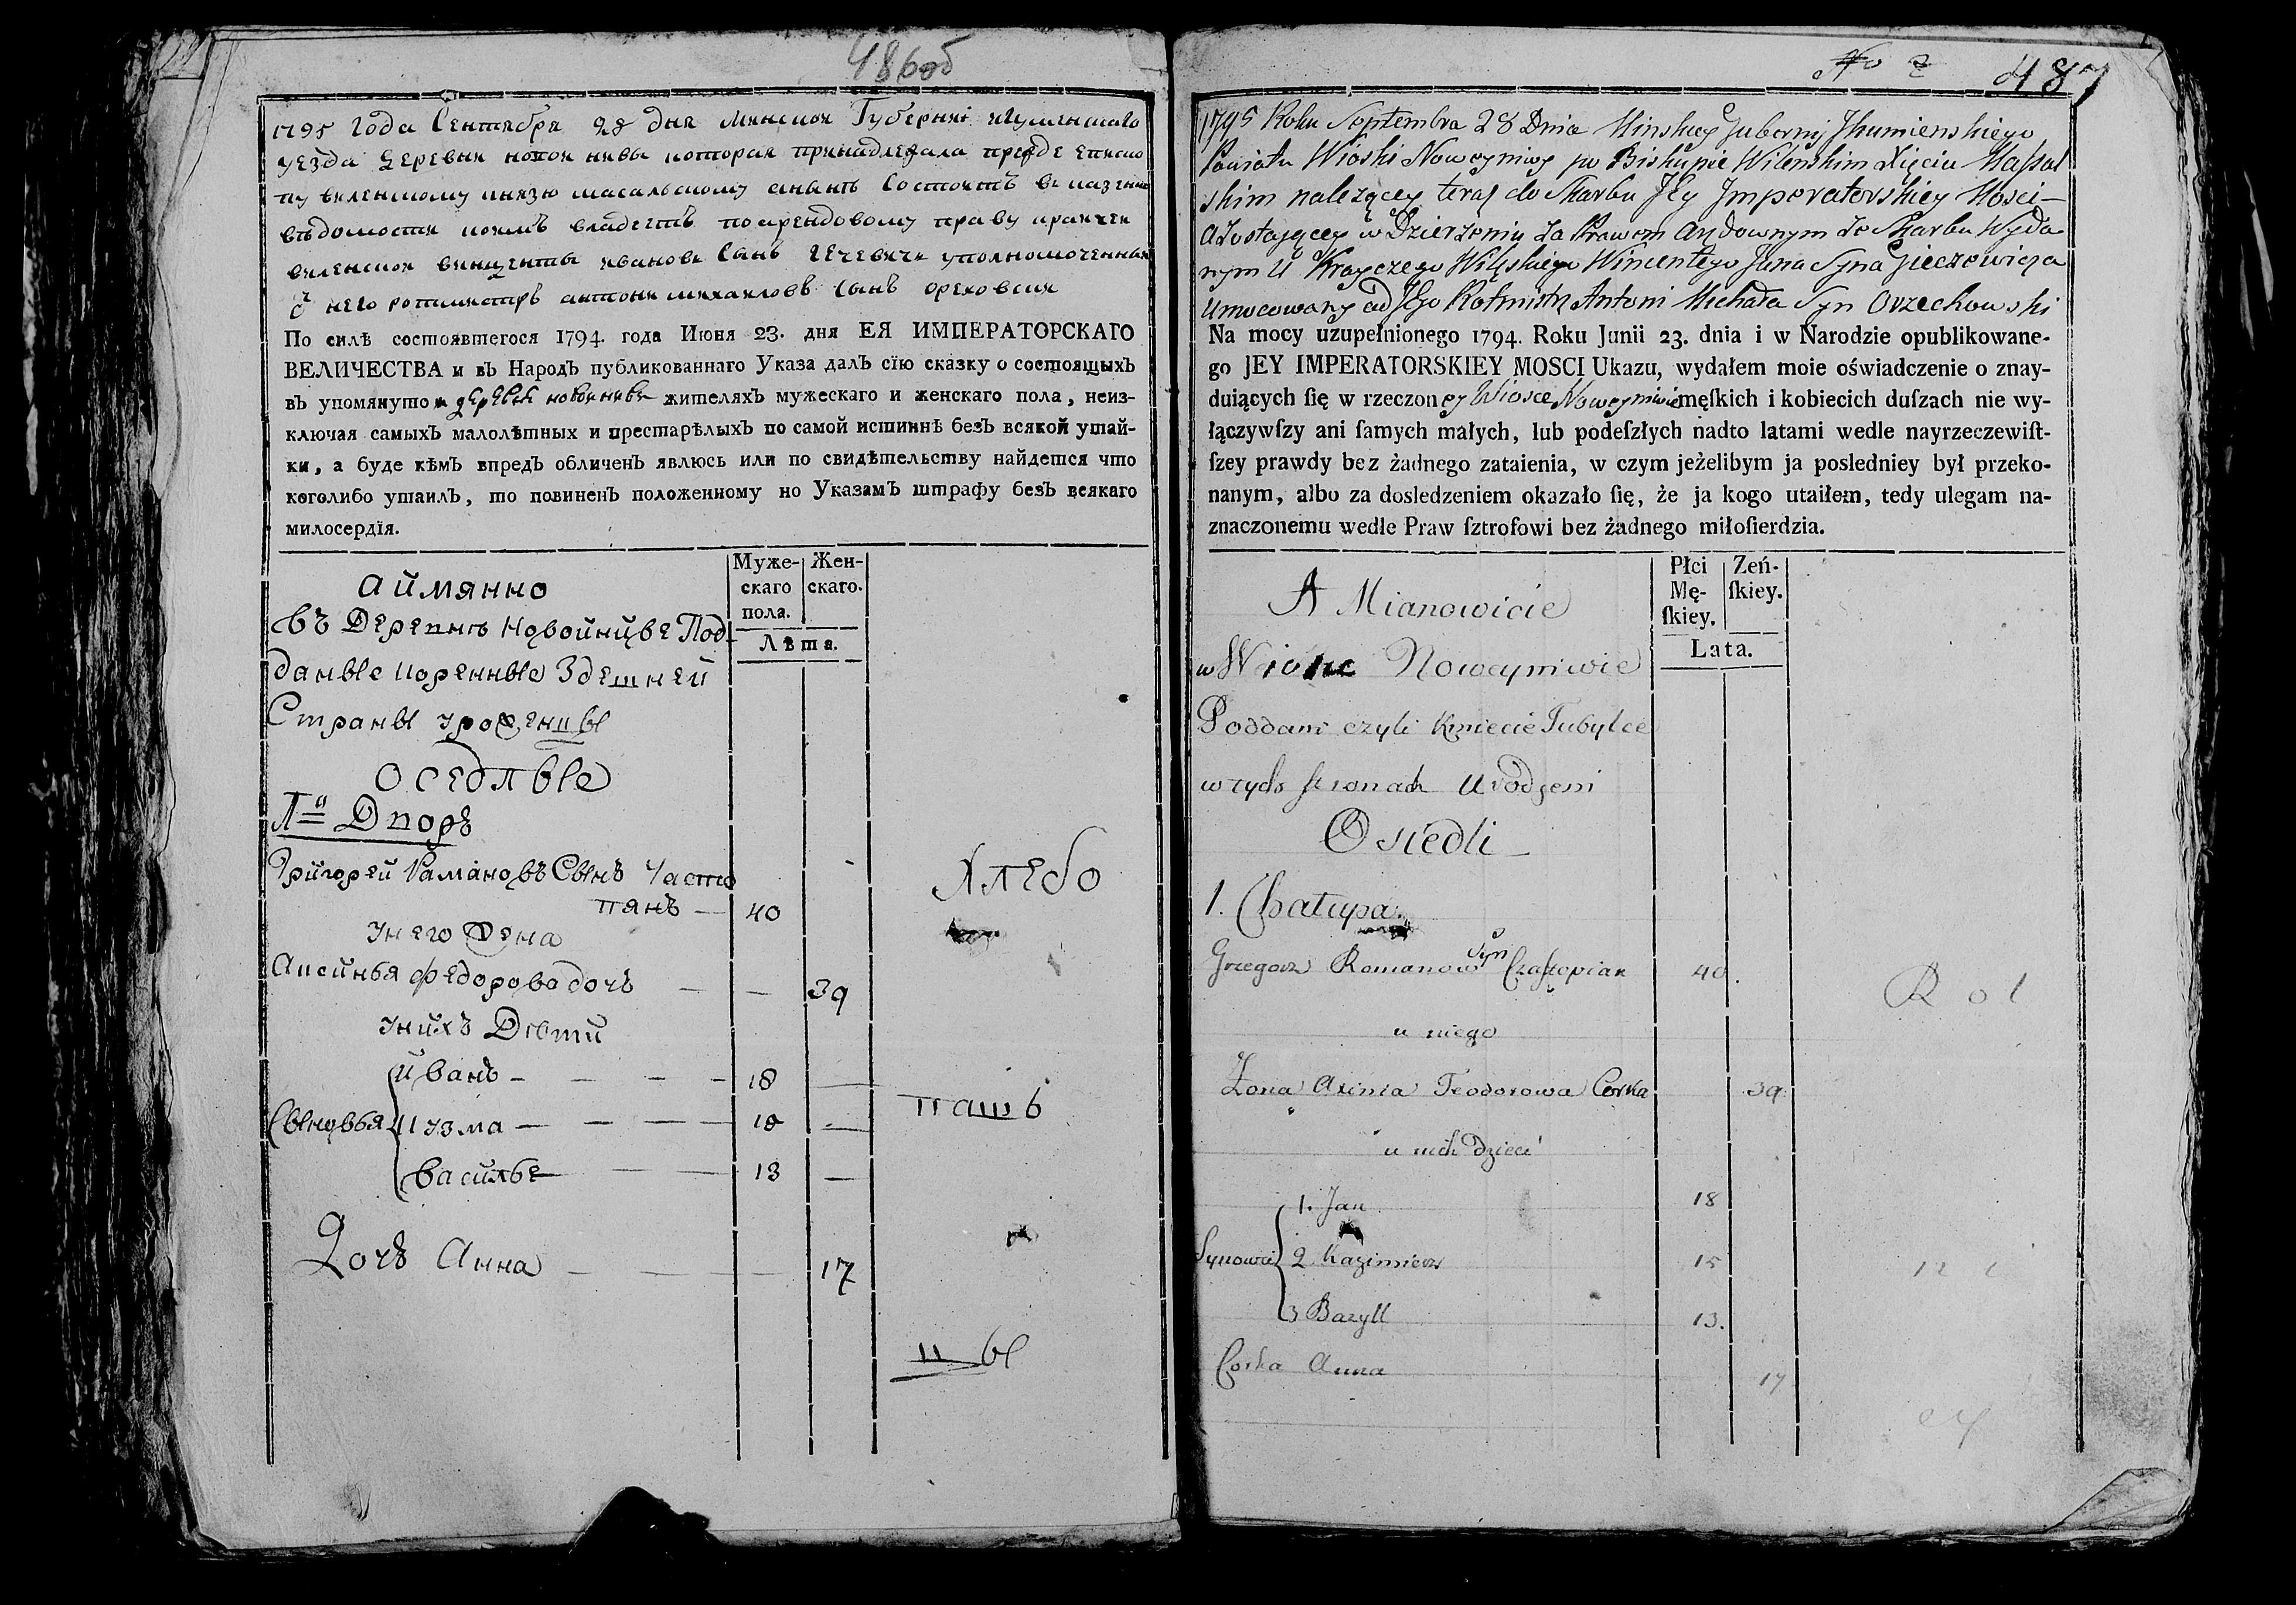 486об
1795 Года Сентября 28 дня минской Губерніи игуменскаго
уезда деревни новой нивы которая принадлежала прежде еписко
пу виленскому князю масальскому анынѣ Состоитъ вказенно
вѣдомости коимъ владеитъ поарендовому праву крайчеи
виленскои винценты иванова Сынъ гечевичь уполномоченный
ѿ него ротмистръ антони михаиловъ Сынъ ореховски
По силѣ состоявшегося 1794. года Июня 23. дня ЕЯ ИМПЕРАТОРСКАГО
ВЕЛИЧЕСТВА и въ Народъ публикованнаго Указа далъ сїю сказку о состоящыхъ
въ упомянутои деревни новои нивы жителяхъ мужескаго и женскаго пола, неиз-
ключая самыхъ малолѣтныхъ и престарѣлыхъ по самой истиннѣ безъ всякой утай-
ки, а буде кѣмъ впредъ обличенъ явлюсь или по свидѣтельству найдется что
коголибо утаилъ, то повиненъ положенному по Указамъ штрафу безъ всякаго
милосердїя.
Муже-
скаго
пола.
Жен-
скаго.
Лѣта.
аймянно
въ Деревнѣ Новойнивѣ Под-
даные коренные Здешней
Страны урожеенцы
оседлые
1й Дворъ
Григорей Рамановъ Сынъ Часто
пянъ — 40
унего жена
Аксинья федорова дочь — — 39
унихъ Дѣти
Сыновья
иванъ — — — 18 —
Кузма — — — 18 —
василье — — 13 —
Дочь Анна — — — 17
Хлебо
паш
цы
No 2 487
1795 Roku Septembra 28 Dnia Minskiey Gubernij Jhumienskiego
Powiatu Wioski Noweyniwy po Biskupie Wilenskim Xięciu Massal
skim należącey teraz do Skarbu JEy Jmperatorskiey Mosci—
a Zostającey w Dzierżeniu za Prawem Arędownym ze Skarbu Wyda
nym U Krayczego Wilskiego Wincentego Jana Syna Gieczewicza
Umocowany od JEgo Rotmistrz Antoni Michała Syn Orzechowski
Na mocy uzupełnionego 1794. Roku Junii 23. dnia i w Narodzie opublikowane-
go JEY IMPERATORSKIEY MOSCI Ukazu, wydałem moie oświadczenie o znay-
duiących ſię w rzeczoney Wiosce Noweyniwie męſkich i kobiecich duſzach nie wy-
łączywſzy ani ſamych małych, lub podeſzłych nadto latami wedle nayrzeczewiſt-
ſzey prawdy bez żadnego zataienia, w czym jeżelibym ja posledniey był przeko-
nanym, albo za dosledzeniem okazało ſię, że ja kogo utaiłem, tedy ulegam na-
znaczonemu wedle Praw ſztrofowi bez żadnego miłoſierdzia.
Płci
Mę-
ſkiey.
Zeń-
ſkiey.
Lata.
A Mianowicie
w Wiosce Noweyniwie
Poddani czyli Kmiecie Tubylce
w tych stronach Urodzeni
Osiedli
1. Chałupa
Grzegorz Romanow Syn Czastopian 40.
u niego
Żona Axinia Teodorowa Corka 39
u nich Dzieci
Synowie
1. Jan 18
2. Kazimierz 15
3 Bazyll 13.
Corka Anna 17
Rol
ni
cy